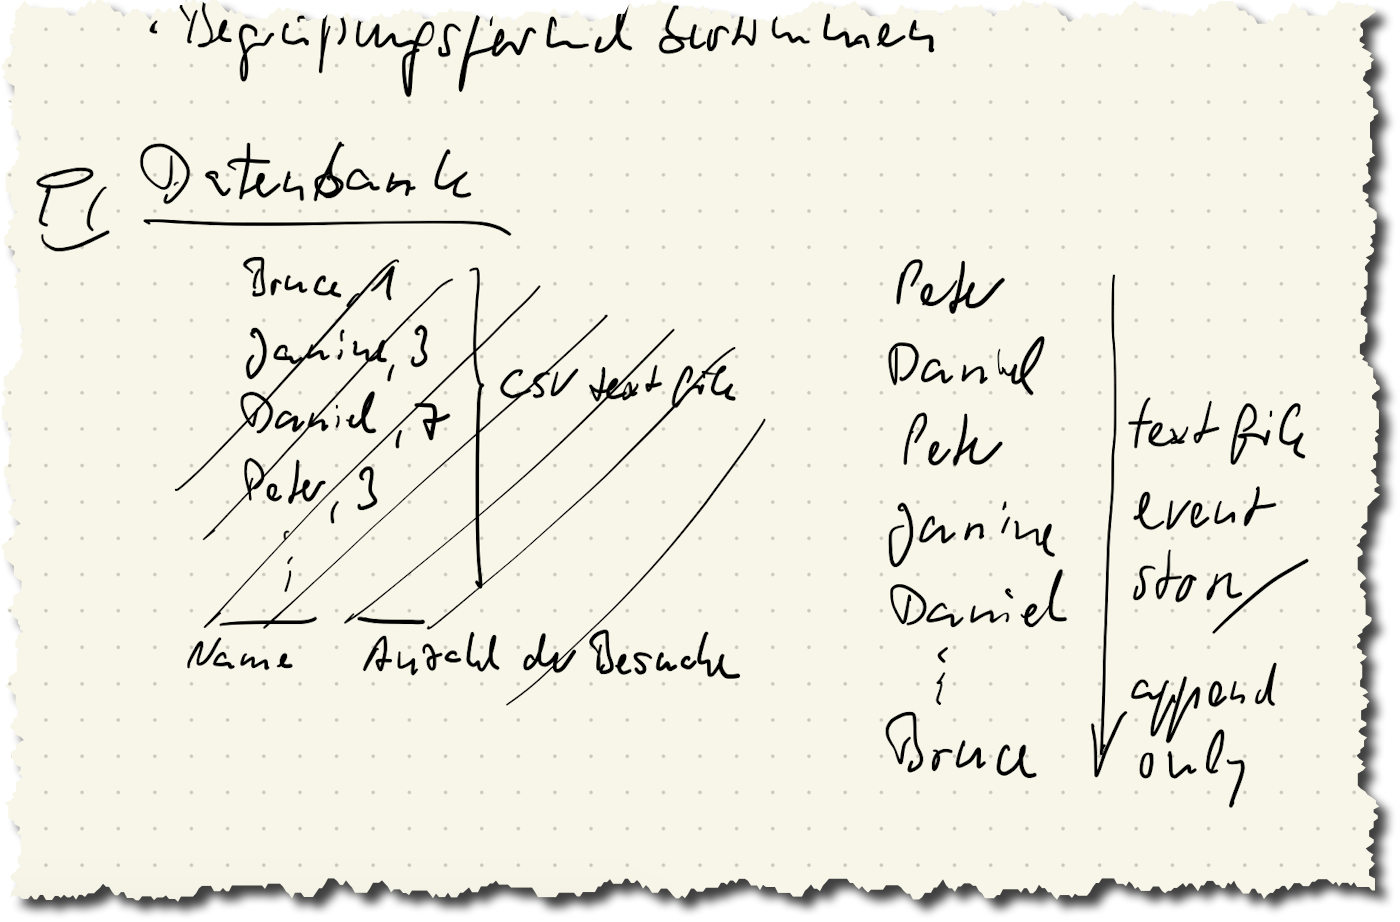 · Begrüßungsformel bestimmen
Datenbank
Bruce, 1
Janine, 3
Daniel, 7
Peter, 3
CSV text file
Name
Anzahl der Besuche
Peter
Daniel
Peter
Janine
Daniel
Bruce
text file
event
store
append
only